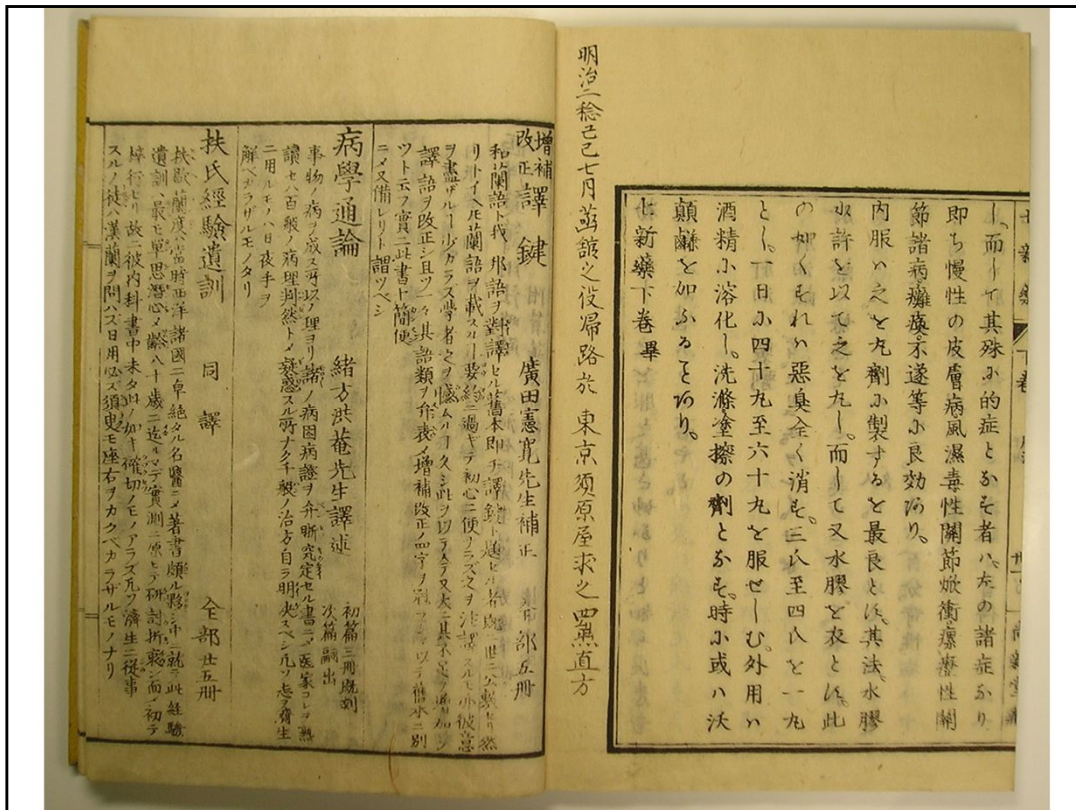 七新藥 下卷
ー、而して其殊に的症となす者ハ、左の諸症なり
即ち慢性の皮膚病、風濕毒性關節焮衝、瘰癧性關
節諸病、癱瘓、不遂等に良効あり。
内服ハ之を丸劑に製するを最良とす、其法、水膠
水許を以て之を丸し、而して又水膠を衣とす、此
の如くすれハ惡臭全く消す、三氏至四氏を一丸
とし、一日に四十九至六十九を服せしむ。外用ハ
酒精に溶化し、洗滌塗擦の劑となす、時に或ハ沃
顛鹻を加ふることあり。
七新藥下卷 畢
明治二稔己巳七月 舘之役帰路於 東京須原屋求之 四 直方
增補改正 譯鍵 廣田憲寛先生補正 部五冊
和蘭語ト我 邦語ヲ對譯セル舊本即チ譯鍵ト題セル者既ニ世ニ公 然
リトイヘ𪜈蘭語ヲ載スル 要約ニ過ギテ初心ニ便ナラズ之ヲ 譯スルモ亦彼意
ヲ盡サ 少カラス學者之ヲ ムル 久シ
譯語ヲ改正シ且ツ一々其語類ヲ メ增補改正ノ四字ヲ 舊本ニ別
ツト云フ實ニ此書ト簡便
ニメ又備レリト謂ツベシ
病學通論 緒方洪菴先生譯述 初篇三冊既刻 次篇嗣出
事物ノ病ヲ成ス所以ノ理ヨリ諸ノ病因病證ヲ弁晰究定セル書ニメ医家コレヲ熟
讀セハ百般ノ病理判然トメ疑惑スル所ナク千般ノ治方自ラ明決スベシ凡ソ志ヲ濟生
ニ用ルモノハ日夜手ヲ
解ベカラザルモノタリ
扶氏經驗遺訓 同譯 全部廿五冊
扶歇蘭度ハ當時西洋諸國ニ卓絶タル名醫ニメ著書頗ル夥シ中ニ就テ此經驗
遺訓ハ最モ單思潛心メ齡八十歳ニ迄ルマデ實測ニ原ヒテ研討折 シ而メ初テ
梓行セリ故ニ彼内科書中未タ此ノ如キ確切ノモノアラズ凡ソ濟生ニ從事
スルノ徒ハ漢蘭ヲ問ハズ日用必ズ須臾モ座右ヲカクベカラザルモノナリ